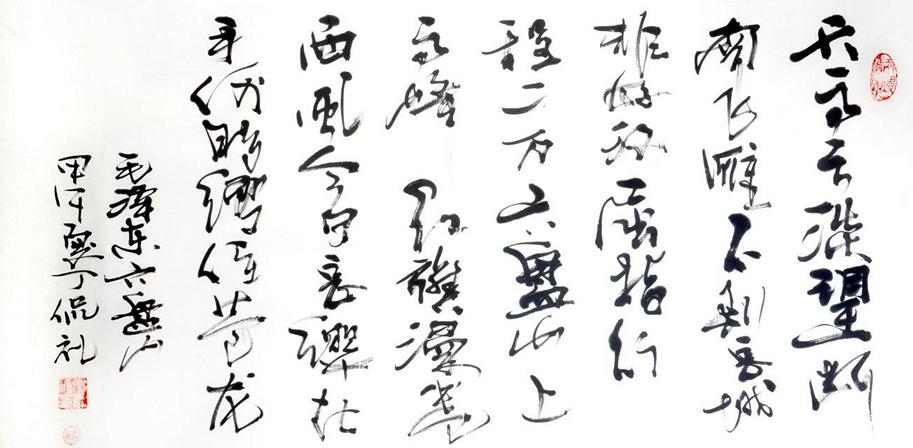 天高云淡望断
南飞雁不到長城
非好汉屈指行
程二万六盤山上
高峰红旗漫卷
西风今日長缨在
手何時缚住苍龙
毛泽东六盘山
甲午夏丁侃礼